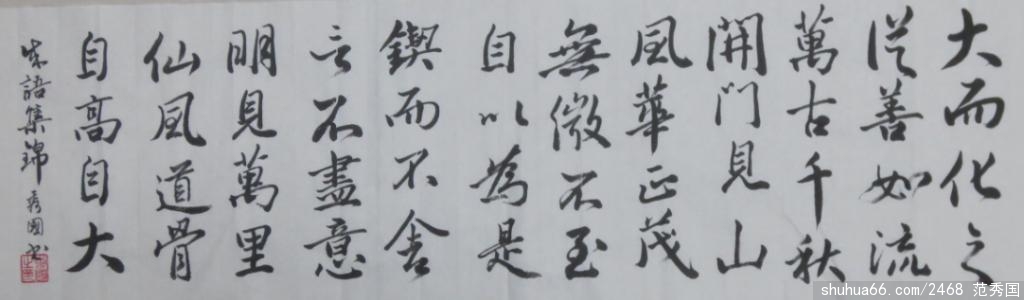 大而化之
從善如流
萬古千秋
開門見山
風華正茂
無微不至
自以為是
鍥而不舍
言不盡意
明見萬里
仙風道骨
自高自大
成語集錦 秀國书
shuhua66.com/2468 范秀国